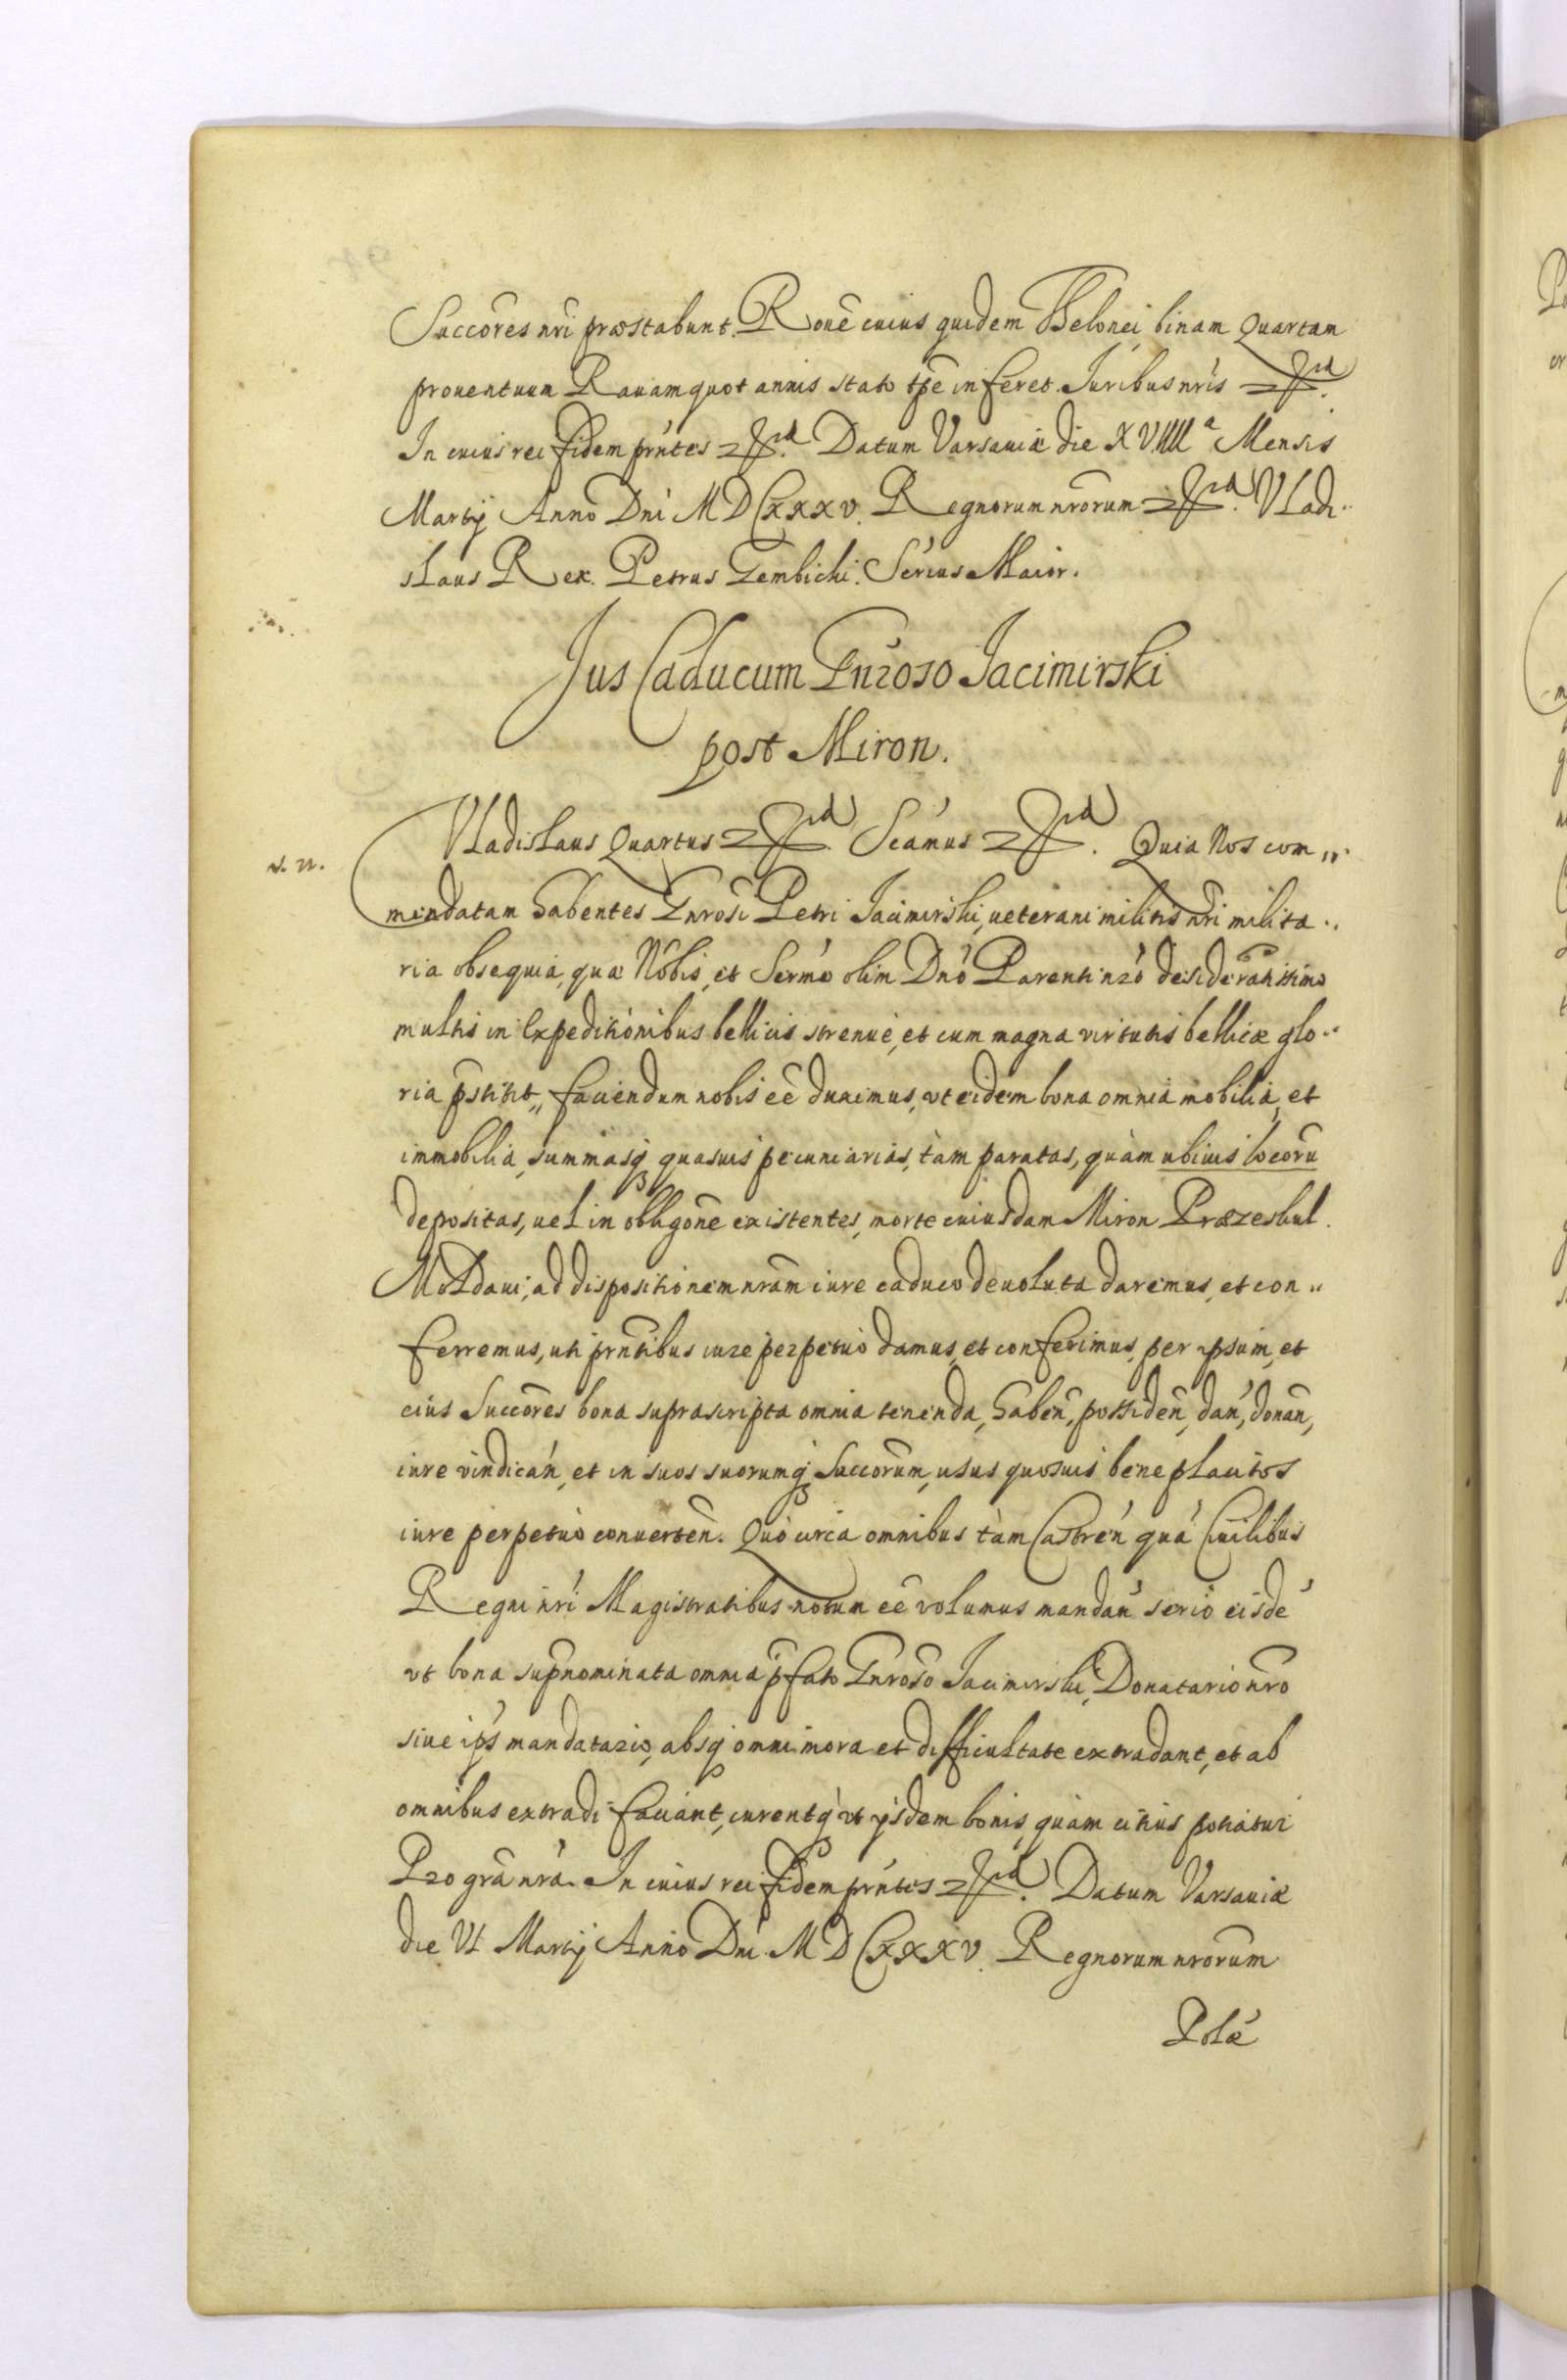 Succores nri præstabunt. Rone cuius quidem Thelonei binam Quartam
prouentuum Rauam quot annis stato tpe inferet. Juribus nris
In cuius rei fidem prntes Datum Varsauiæ die XVIIII a Mensis
Martij Anno Dni MDCXXXV. Regnorum nrorum Vladi
slaus Rex. Petrus Gembicki Serius Maior.
Jus Caducum Gnroso Jacimirski
post Miron.
Vladislaus Quartus Scamus Quia Nos com
s. n.
mendatam habentes Gnrosi Petri Jacimirski, ueterani militis nri milita
ria obsequia, quæ Nobis, et Sermo olim Dno Parenti nro desideratissimo
multis in Expeditionibus bellicis strenue, et cum magna virtutis bellicæ glo
ria pstitit, faciendum nobis eé duximus, vt eidem bona omnia mobilia, et
immobilia, summasq quasuis pecuniarias, tàm paratas, quàm ubiuis locoru
depositas, uel in obligone existentes, morte cuiusdam Miron Præzeskul
Moldaui, ad dispositionem nram iure caduco deuoluta daremus, et con
ferremus, uti prntibus iure perpetuo damus, et conferimus, per ipsum, et
eius Succores bona suprascripta omnia tenenda, haben, possiden, dan, donan,
iure vindican, et in suos suorumq Succorum, usus quosuis beneplacitos
iure perpetuo conuerten. Quo circa omnibus tàm Castren quá Ciuilibus
Regni nri Magistratibus notum eé volumus mandan serio eisdé
vt bona supnominata omnia pfato Gnroso Jacimirski, Donatario nro
siue ips mandatario, absq omni mora et difficultate extradant, et ab
omnibus extradi faciant, curentq vt ijsdem bonis quàm citius potiatur
Pro gra nra. In cuius rei fidem prntes Datum Varsauiæ
die VI Martij Anno Dni MDCXXXV. Regnorum nrorum
Polæ